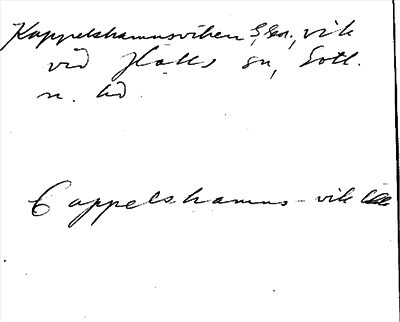 Kappelshamnsviken S, sn., vik
vid Halls sn, Gotl.
n. hd.
Cappelshamns-vik